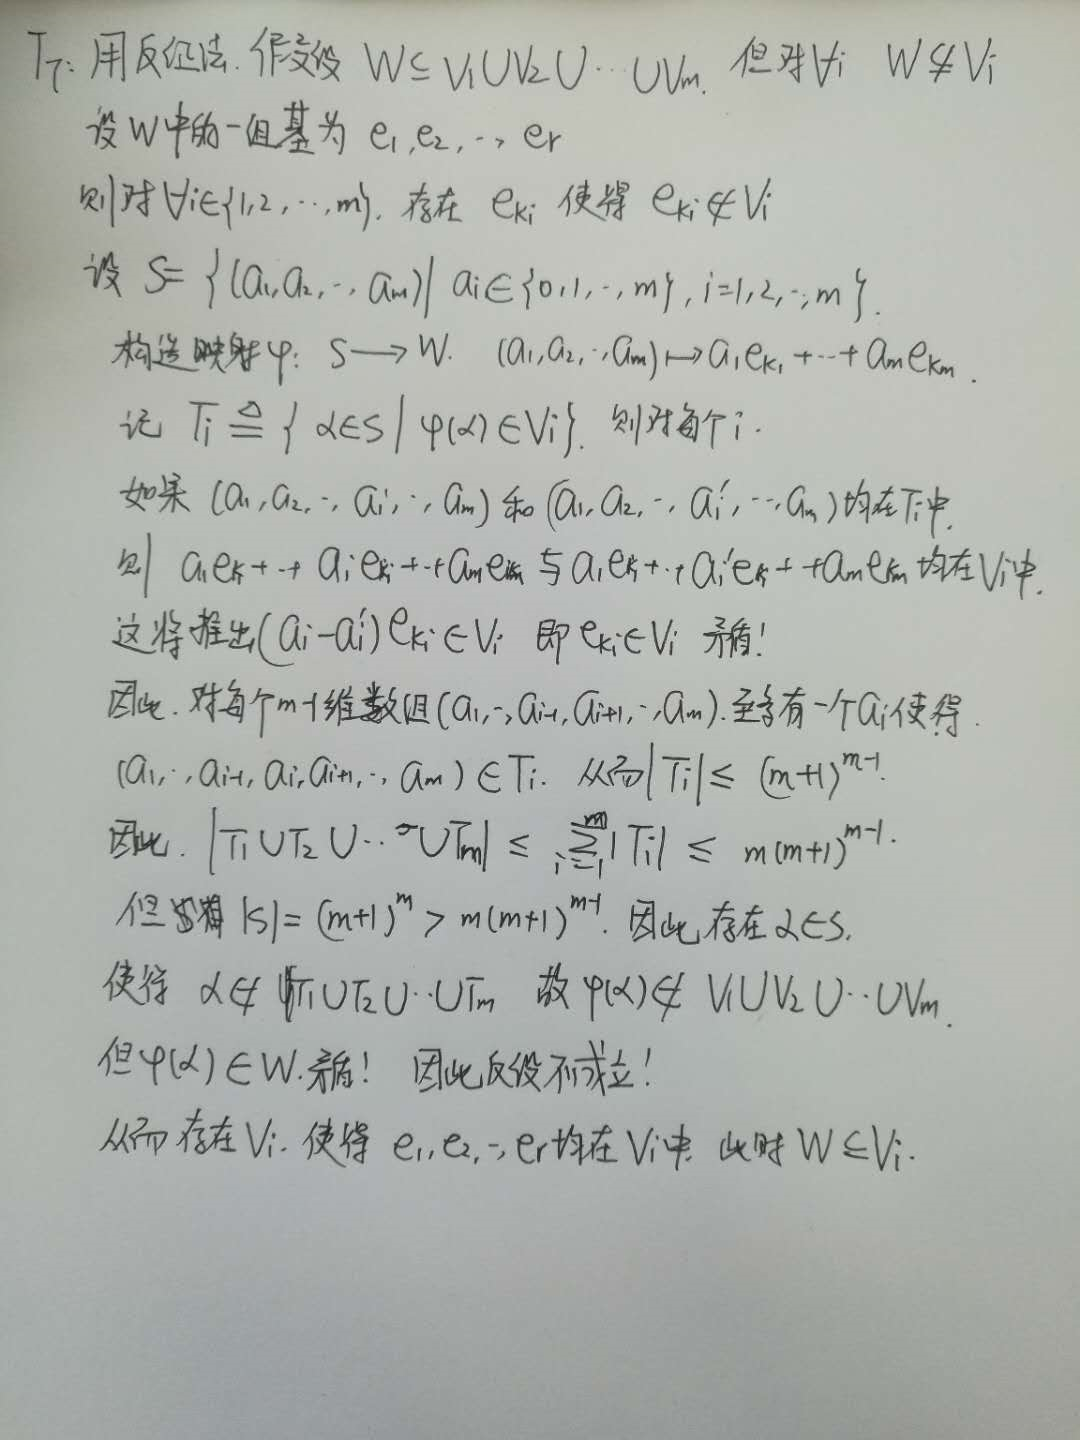 T7: 用反证法. 假设 W⊆V₁∪V₂∪…∪Vm. 但对∀i W⊈Vi
设W中的一组基为 e₁,e₂,…,er
则对∀i∈{1,2,…,m}. 存在 eki 使得 eki∉Vi
设 S={(a₁,a₂,…,am)| ai∈{0,1,…,m}, i=1,2,…,m}.
构造映射φ: S→W. (a₁,a₂,…,am)↦a₁ek₁+…+amekm.
记 Ti≜{α∈S | φ(α)∈Vi}. 则对每个i.
如果 (a₁,a₂,…,ai,…,am)和(a₁,a₂,…,ai′,…,am)均在Ti中.
则 a₁ek₁+…+aieki+…+amekm与a₁ek₁+…+ai′eki+…+amekm均在Vi中.
这将推出(ai-ai′)eki∈Vi 即eki∈Vi 矛盾!
因此. 对每个m-1维数组(a₁,…,ai-1,ai+1,…,am). 至多有一个ai使得
(a₁,…,ai-1,ai,ai+1,…,am)∈Ti. 从而|Ti|≤(m+1)^{m-1}.
因此. |T₁∪T₂∪…∪Tm|≤∑_{i=1}^{m}|Ti|≤m(m+1)^{m-1}.
但 |S|=(m+1)^m>m(m+1)^{m-1}. 因此存在α∈S.
使得 α∉T₁∪T₂∪…∪Tm 故φ(α)∉V₁∪V₂∪…∪Vm.
但φ(α)∈W.矛盾! 因此反设不成立!
从而存在Vi. 使得 e₁,e₂,…,er均在Vi中. 此时W⊆Vi.